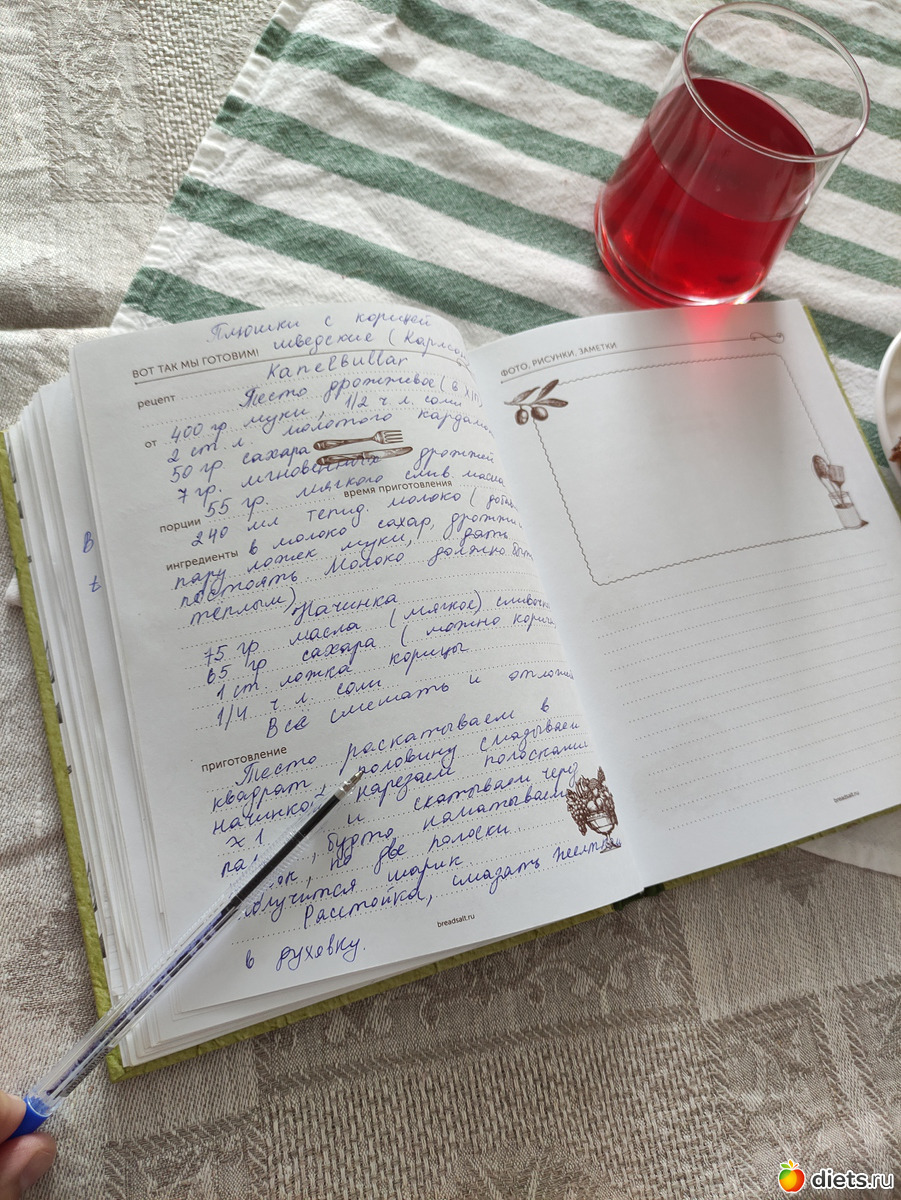 Плюшки с корицей
шведские (Карлсон
ВОТ ТАК МЫ ГОТОВИМ!
Kanelbullar
рецепт
Тесто дрожжевое (в
от 400 гр муки, 1/2 ч л. соли
2 ст. л. молотого
50 гр. сахара
7 гр. мгновенных дрожжей
55 гр. мягкого слив. масла
время приготовления
порции
240 мл тепл. молоко
ингредиенты
в молоко сахар,
пару ложек муки, дать
постоять молоко должно быть
теплым)
Начинка
75 гр масла (мягкое)
65 гр сахара (можно
1 ст ложка корицы
1/4 ч л. соли
Все смешать и
приготовление
Тесто раскатываем в
квадрат половину смазываем
нарезаем полосками
х 1 и скатываем через
, будто наматываем
, на две полоски
шарик
Расстойка, смазать
в духовку.
breadsalt.ru
ФОТО, РИСУНКИ, ЗАМЕТКИ
breadsalt.ru
diets.ru